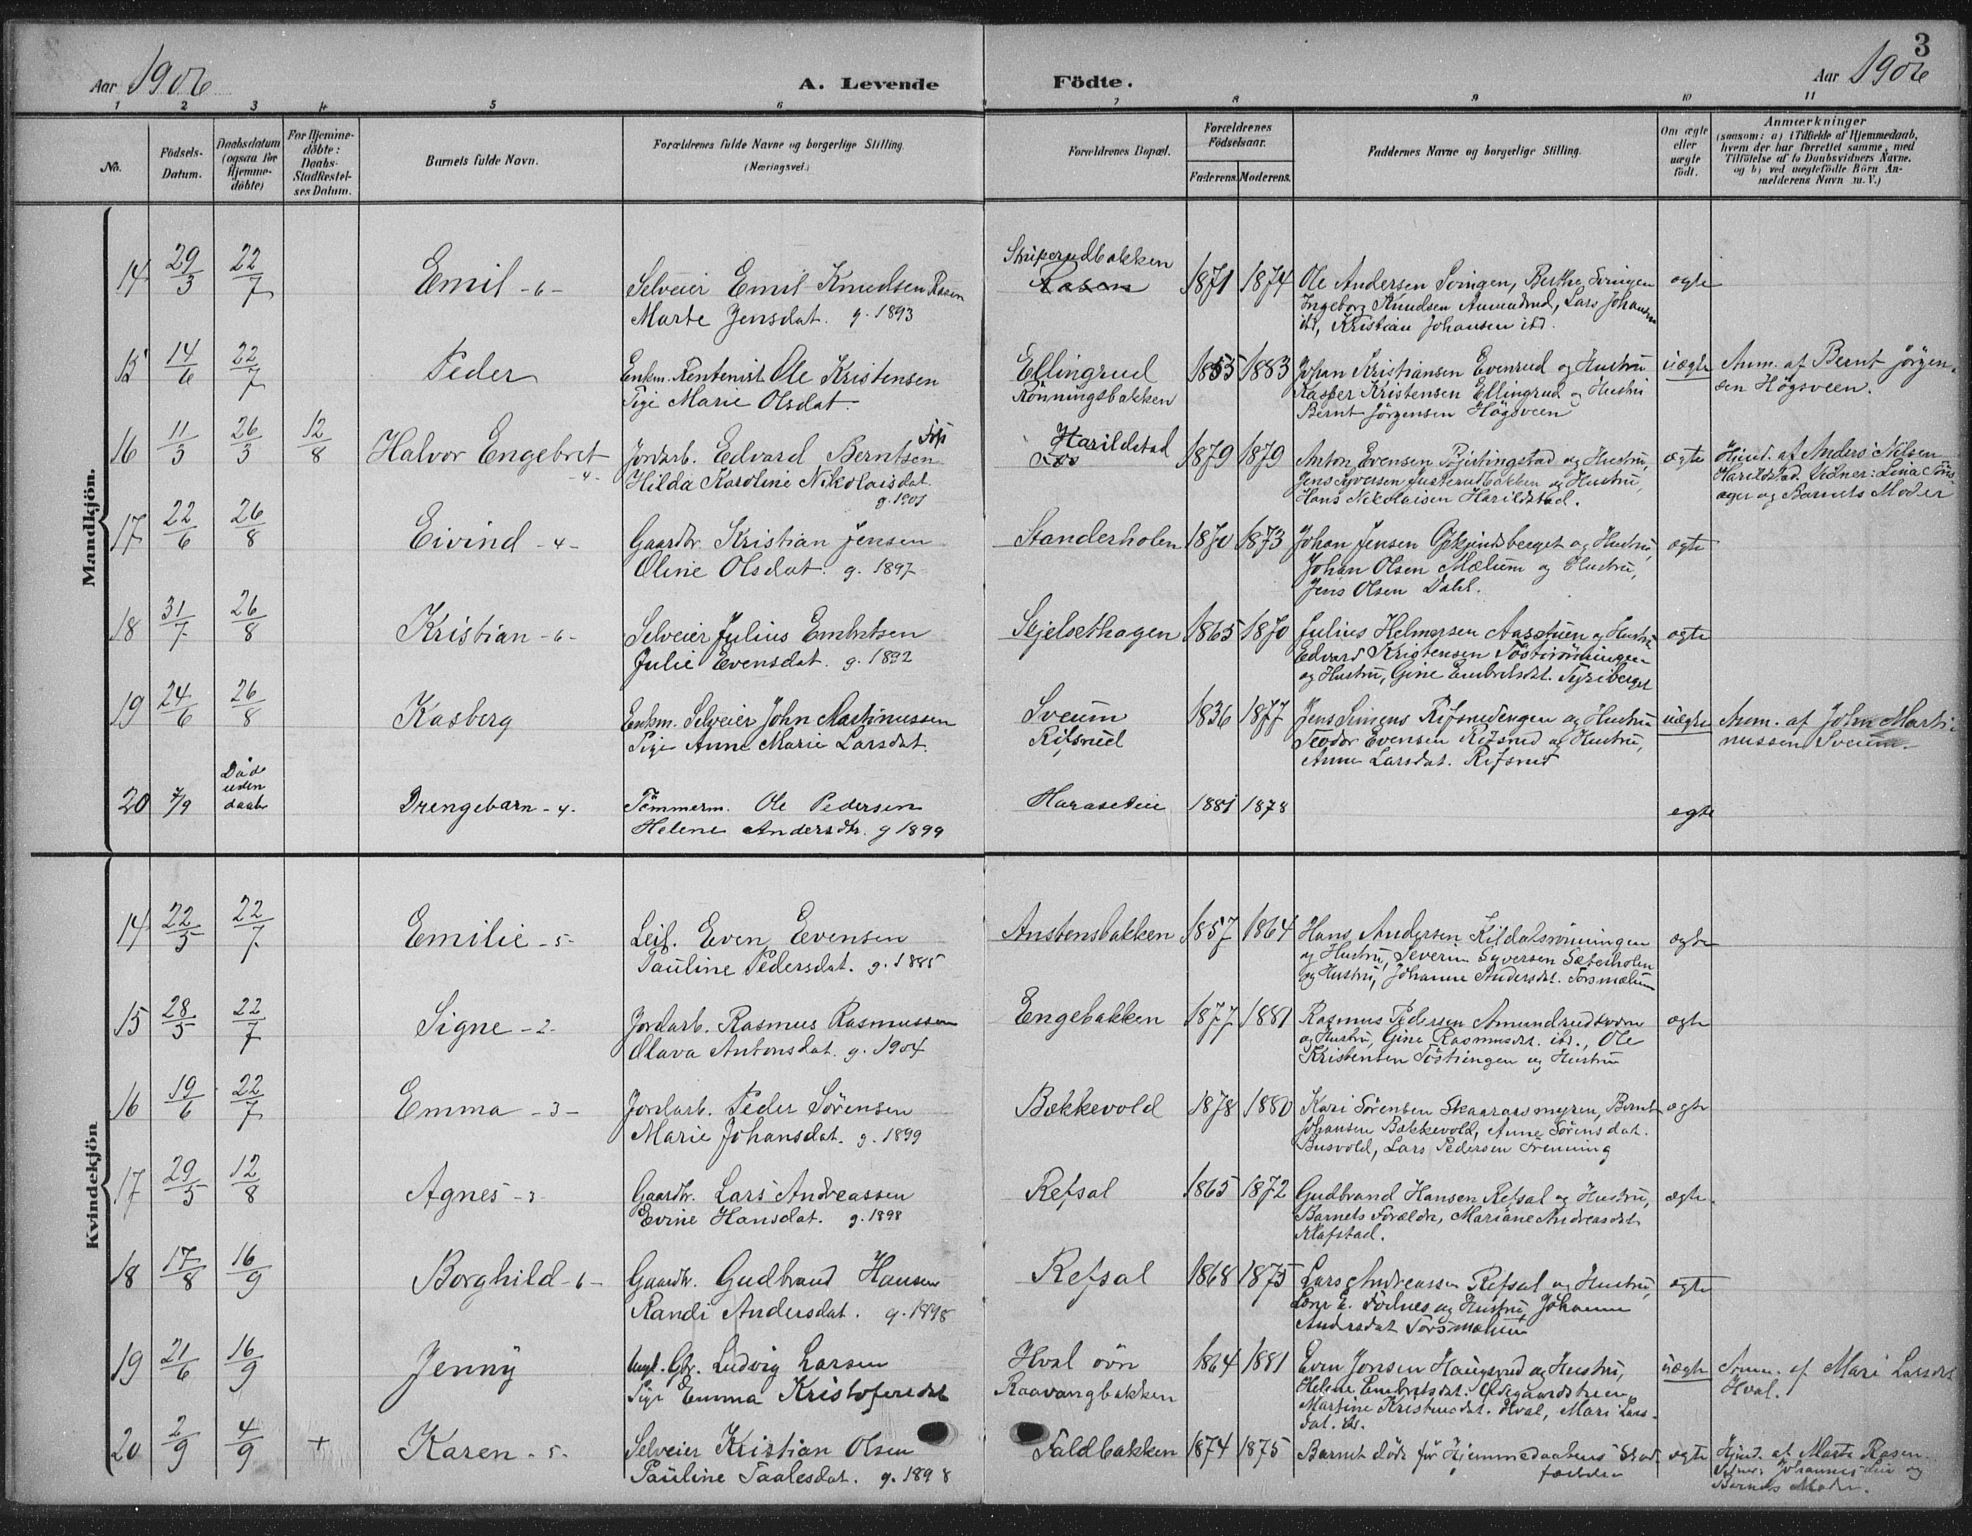 3
Aar 1906 A. Levende Födte. Aar 1906
1 2 3 4 5 6 7 8 9 10 11
No.
Födsels-Datum.
Daabsdatum (ogsaa for Hjemme-döbte)
For Hjemme-döbte: Daabs-Stadfæstel-ses Datum.
Barnets fulde Navn.
Forældrenes fulde Navne og borgerlige Stilling. (Næringsvei.)
Forældrenes Bopæl.
Forældrenes Födselsaar.
Faderens. Moderens.
Faddernes Navne og borgerlige Stilling.
Om ægte eller uægte födt.
Anmærkninger
(saasom: a) i Tilfælde af Hjemmedaab,
hvem der har forrettet samme, med
Tilföielse af to Daabsvidners Navne.
og b) ved uægtefödte Börn An-
melderens Navn m. V.)
Mandkjön.
14 29/3 22/7 Emil - 6 - Selveier Emil Knudsen Rasen
Marte Jensdat. g. 1893
Rasen 1871 1874
Ole Andersen Svingen, Berthe Svingen
Ingeborg Knudsen Amundrud, Lars Johansen
ibd, Kristian Johansen ibd.
ægte
15 14/6 22/7 Peder Enkm. Rentenist Ole Kristensen
Pige Marie Olsdat.
Ellingrud
Rönningsbakken
1855 1883
Johan Kristiansen Evenrud og Hustru
Kasper Kristensen Ellingrud og Hustru
Bernt Jörgensen Högsveen
uægte
Anm. af Bernt Jörgen-
sen Högsveen.
16 11/3 26/3 12/8 Halvor Engebret - 4 -
Jordarb. Edvard Berntsen
Hilda Karoline Nikolaisdat.
g. 1901
Harildstad
1879 1879
Anton Evensen og Hustru,
Hans Nikolaisen Harildstad.
ægte
Hjmd. af Anders Nilsen
Harildstad. Vidner: Lina
og Barnets Moder
17 22/6 26/8 Eivind - 4 - Gaardbr. Kristian Jensen
Oline Olsdat. g. 1897
Standerholen 1870 1873
Johan Jensen og Hustru,
Johan Olsen Mælum og Hustru,
Jens Olsen Dahl.
ægte
18 31/7 26/8 Kristian - 6 - Selveier Julius Embretsen
Julie Evensdat. g. 1892
Skjelsethagen 1865 1870
Julius Helmersen Aasstuen og Hustru
Edvard Kristensen
og Hustru, Gine Embretsdat. Tyriberget
ægte
19 24/6 26/8 Kasberg Enkm. Selveier John Martinussen
Pige Anne Marie Larsdat.
Sveum
Rifsrud
1836 1877
Jens Simens Rifsrudengen og Hustru
Teodor Evensen Rifsrud og Hustru,
Anne Larsdat. Rifsrud
uægte
Anm. af John Marti-
nussen Sveum.
20 7/9 Död uden daab Drengebarn - 4 - Tömmerm. Ole Pedersen
Helene Andersdtr. g 1899
1881 1878
egte
Kvindekjön
14 22/5 22/7 Emilie - 5 - Leil. Even Evensen
Pauline Pedersdat. g. 1885
Anstensbakken 1857 1864
Hans Andersen Kildalsrönningen
og Hustru, Severin Syversen Sæterholen
og Hustru, Johanne Andersdat. Torsmælum
ægte
15 28/5 22/7 Signe - 2 - Jordarb. Rasmus Rasmussen
Olava Antonsdat. g. 1904
Engebakken 1877 1881
Rasmus Pedersen
og Hustru, Gine Rasmusdt. ibd., Ole
Kristensen og Hustru
ægte
16 19/6 22/7 Emma - 3 - Jordarb. Peder Sörensen
Marie Johansdat. g. 1899
Bækkevold 1878 1880
Kari Sörensen Skaaraasmyren, Bernt
Johansen Bækkevold, Anne Sörensdat.
Busvold, Lars Pedersen
ægte
17 29/5 12/8 Agnes - 3 Gaardbr. Lars Andreassen
Evine Hansdat. g. 1898
Refsal 1865 1872
Gudbrand Hansen Refsal og Hustru,
Barnets Forældre, Mariane Andreasdat.
Klafstad.
ægte.
18 17/8 16/9 Borghild - 6 - Gaardbr. Gudbrand Hansen
Randi Andersdat. g. 1898
Refsal 1868 1875
Lars Andreassen Refsal og Hustru,
og Hustru, Johanne
Andersdat Torsmælum
ægte
19 21/6 16/9 Jenny Ungk. Gbr. Ludvig Larsen
Pige Emma Kristofersdat
Hval övre
Raavangbakken
1864 1881
Even Jonsen Haugsrud og Hustru,
Helene Embretsdat.
Martine Kristensdat. Hval, Mari Lars-
dat. ibd.
uægte
af Mari Larsdat
Hval.
20 2/9 4/9 + Karen - 5 - Selveier Kristian Olsen
Pauline Paalesdat. g. 1898
Faldbakken 1874 1875
Barnet döde för Hjemmedaabens Stad-
fæstelse
ægte
Hjmd. af Marte Rasen.
Vidner: Johannes og
Barnets Moder.